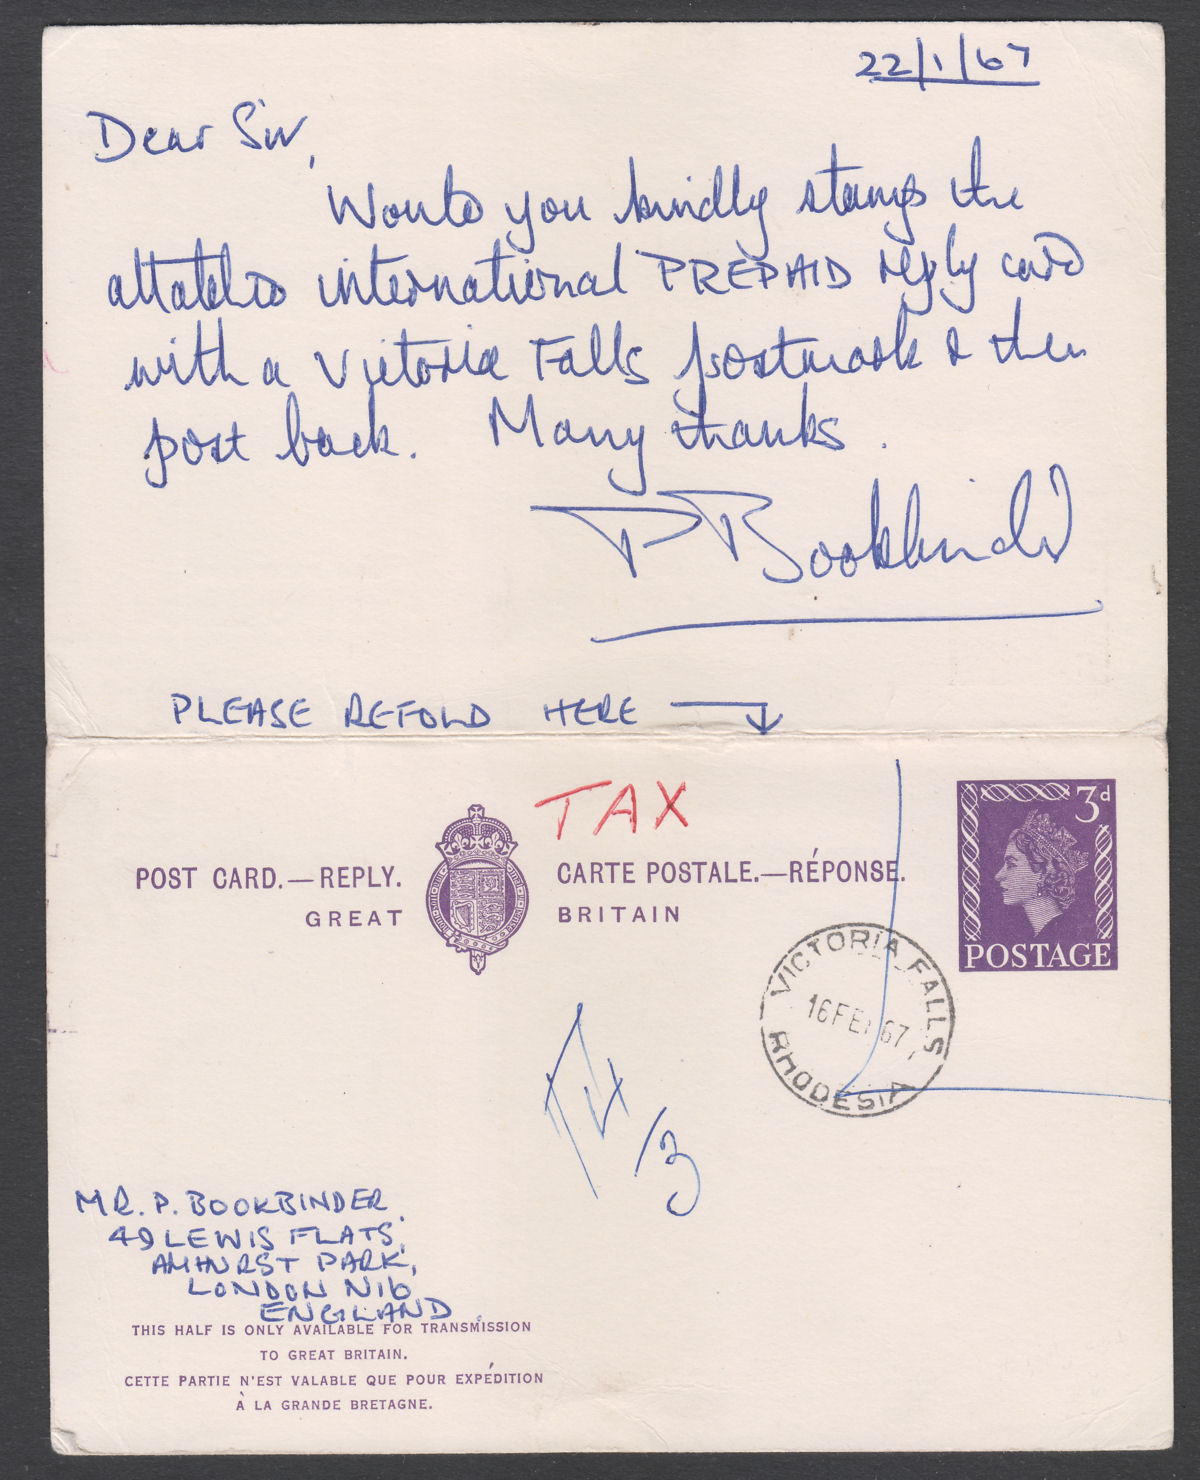 22/1/67
Dear Sir,
Would you kindly stamp the
attatched international PREPAID reply card
with a Victoria Falls postmark & then
post back. Many thanks.
P Bookbinder
PLEASE REFOLD HERE
TAX
3d
POST CARD.—REPLY. CARTE POSTALE.—RÉPONSE.
GREAT BRITAIN
POSTAGE
VICTORIA FALLS
16 FEB 67
RHODESIA
/3
MR. P. BOOKBINDER,
49 LEWIS FLATS,
AMHURST PARK,
LONDON N16
ENGLAND.
THIS HALF IS ONLY AVAILABLE FOR TRANSMISSION
TO GREAT BRITAIN.
CETTE PARTIE N'EST VALABLE QUE POUR EXPÉDITION
À LA GRANDE BRETAGNE.